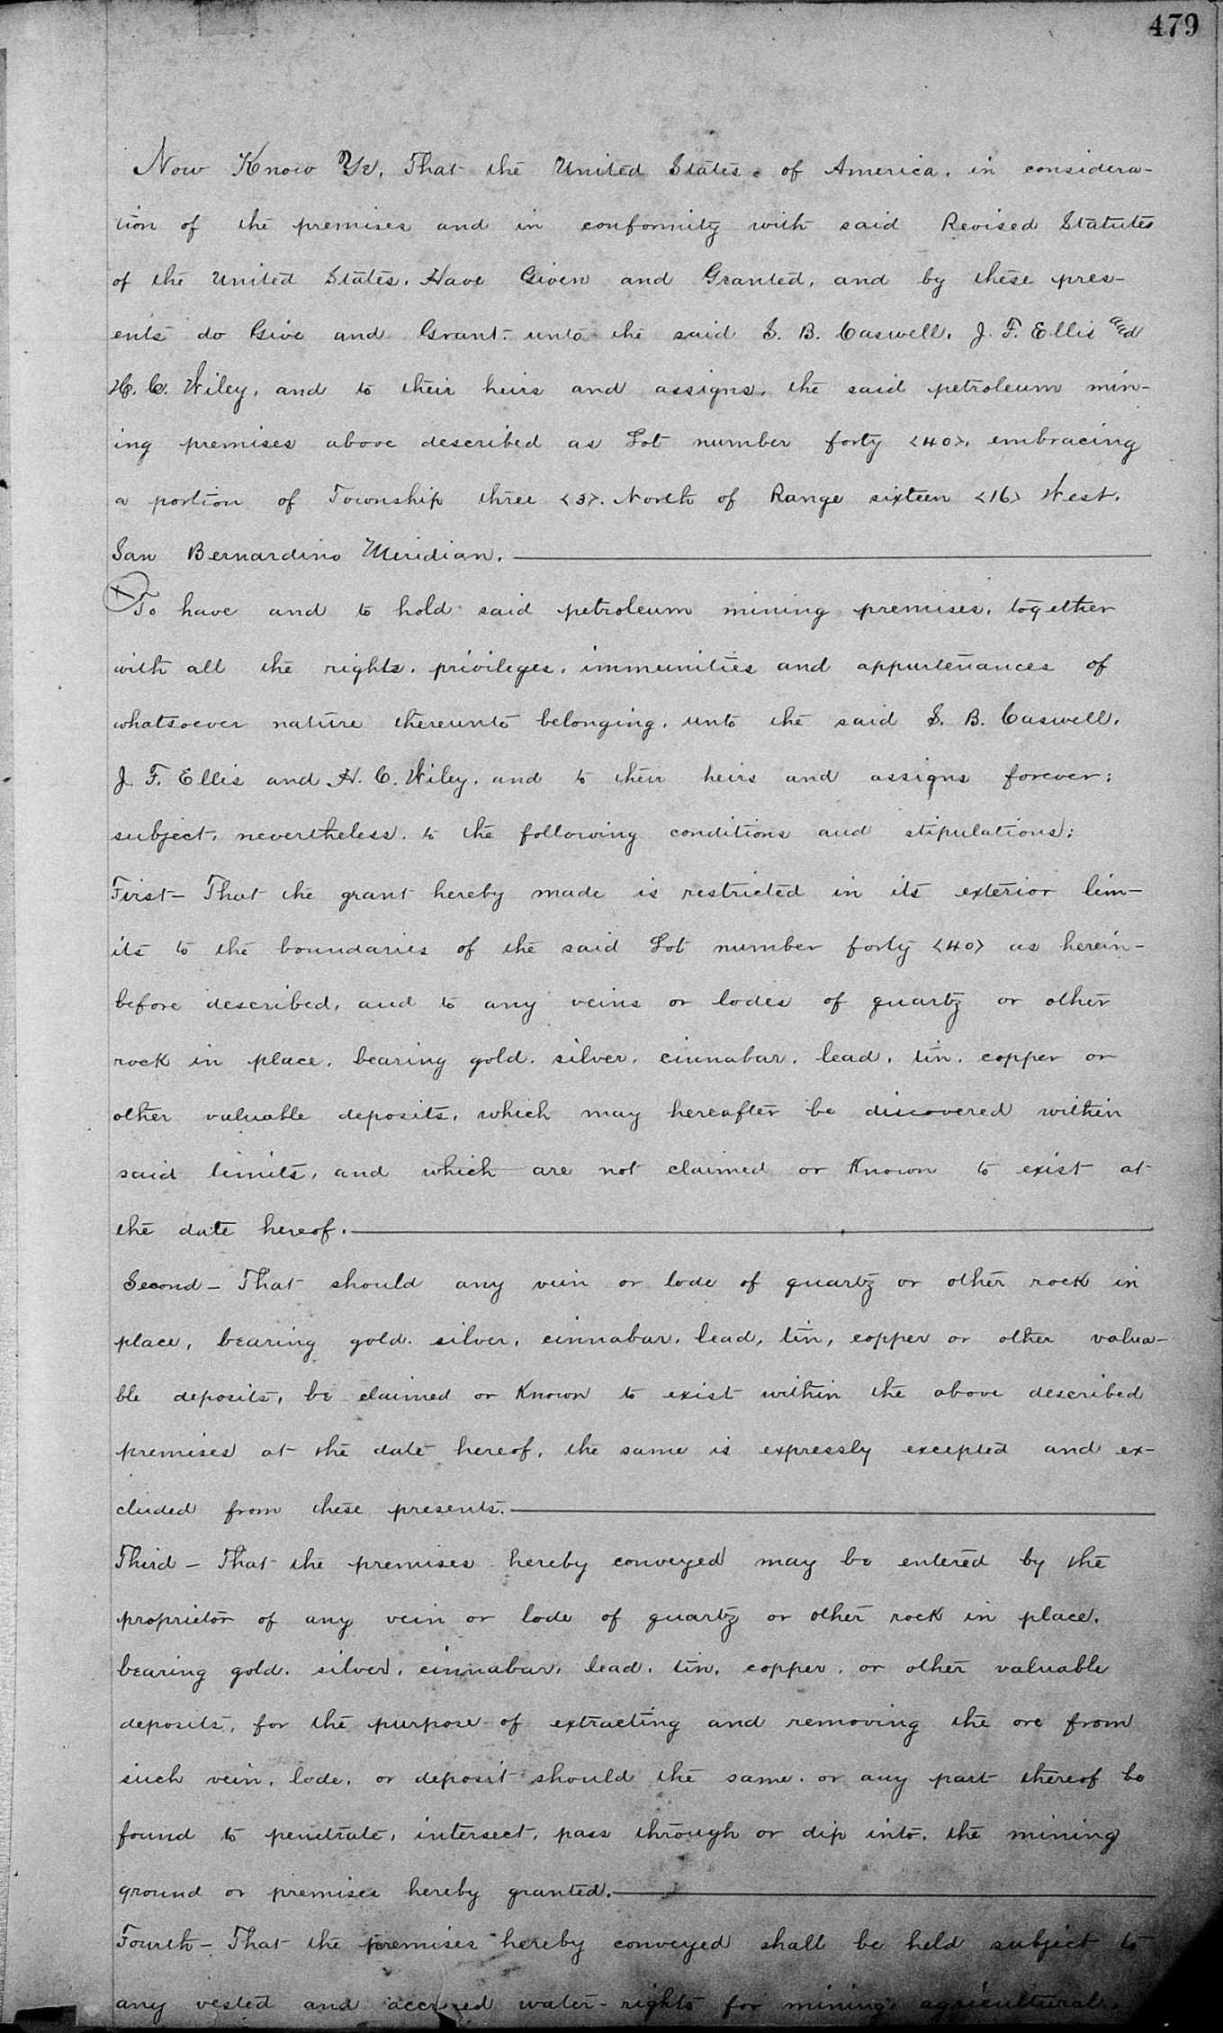 479
Now Know Ye, That the United States of America, in considera-
tion of the premises and in conformity with said Revised Statutes
of the United States, Have Given and Granted, and by these pres-
ents do Give and Grant unto the said S. B. Caswell, J. F. Ellis and
H. C. Wiley, and to their heirs and assigns, the said petroleum min-
ing premises above described as Lot number forty <40>, embracing
a portion of Township three <3>. North of Range sixteen <16> West.
San Bernardino Meridian.
To have and to hold said petroleum mining premises, together
with all the rights, privileges, immunities and appurtenances of
whatsoever nature thereunto belonging, unto the said S. B. Caswell,
J. F. Ellis and H. C. Wiley, and to their heirs and assigns forever;
subject, nevertheless, to the following conditions and stipulations:
First- That the grant hereby made is restricted in its exterior lim-
its to the boundaries of the said Lot number forty <40> as herein-
before described, and to any veins or lodes of quartz or other
rock in place, bearing gold, silver, cinnabar, lead, tin, copper or
other valuable deposits, which may hereafter be discovered within
said limits, and which are not claimed or Known to exist at
the date hereof.
Second- That should any vein or lode of quartz or other rock in
place, bearing gold, silver, cinnabar, lead, tin, copper or other valua-
ble deposits, be claimed or Known to exist within the above described
premises at the date hereof, the same is expressly excepted and ex-
cluded from these presents.
Third- That the premises hereby conveyed may be entered by the
proprietor of any vein or lode of quartz or other rock in place,
bearing gold, silver, cinnabar, lead, tin, copper, or other valuable
deposits, for the purpose of extracting and removing the ore from
such vein, lode, or deposit should the same, or any part thereof be
found to penetrate, intersect, pass through or dip into, the mining
ground or premises hereby granted.
Fourth- That the premises hereby conveyed shall be held subject to
any vested and accrued water-rights for mining, agricultural,